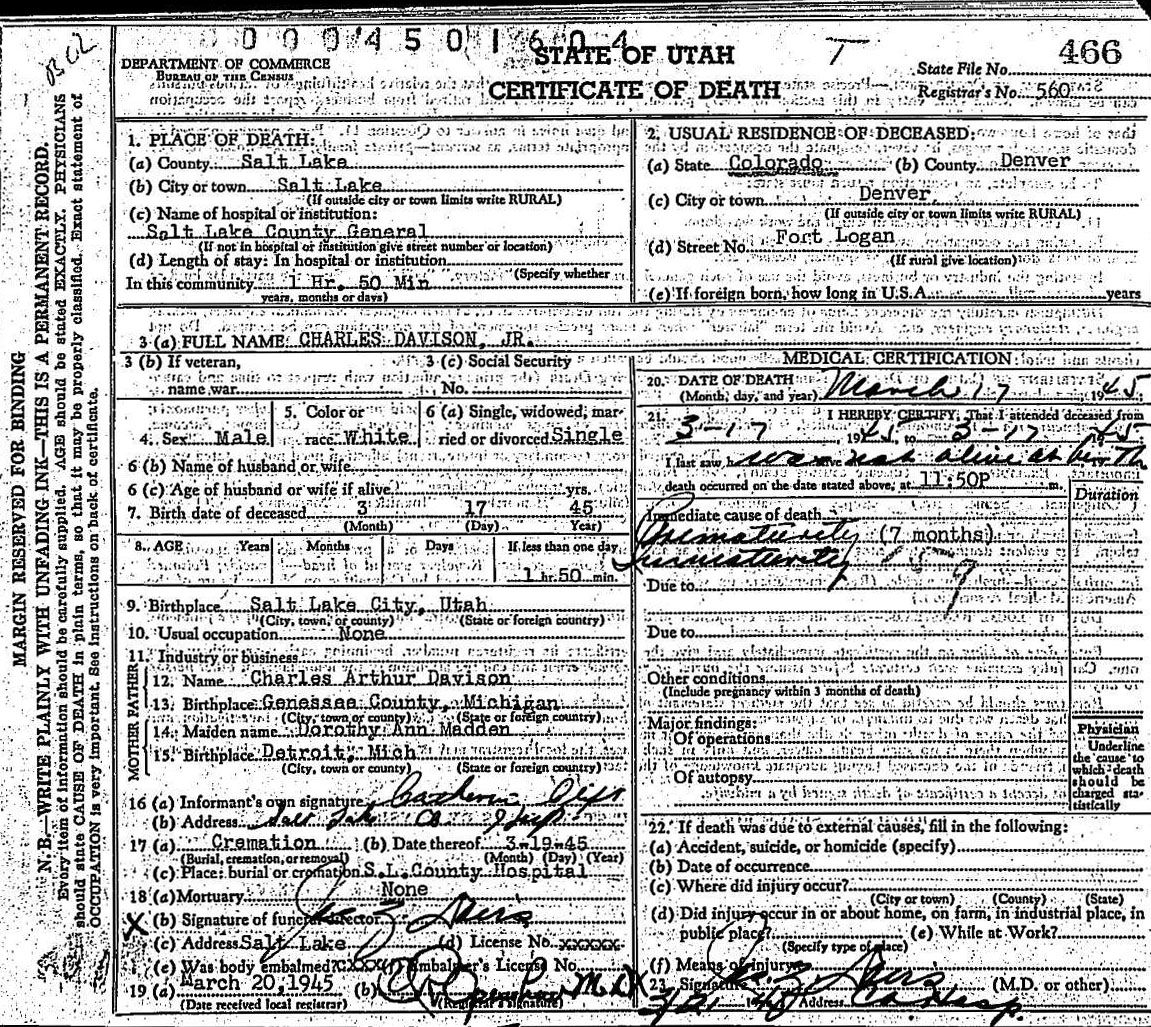 0 0 0 4 5 0 1 6 0 4
STATE OF UTAH
T
466
DEPARTMENT OF COMMERCE
BUREAU OF THE CENSUS
CERTIFICATE OF DEATH
State File No.
Registrar's No. 560
MARGIN RESERVED FOR BINDING
N. B.—WRITE PLAINLY WITH UNFADING INK—THIS IS A PERMANENT RECORD.
Every item of information should be carefully supplied. AGE should be stated EXACTLY. PHYSICIANS
should state CAUSE OF DEATH in plain terms, so that it may be properly classified. Exact statement of
OCCUPATION is very important. See instructions on back of certificate.
1. PLACE OF DEATH:
(a) County Salt Lake
(b) City or town Salt Lake
(If outside city or town limits write RURAL)
(c) Name of hospital or institution:
Salt Lake County General
(If not in hospital or institution give street number or location)
(d) Length of stay: In hospital or institution
(Specify whether
In this community 1 Hr. 50 Min
years, months or days)
2. USUAL RESIDENCE OF DECEASED:
(a) State Colorado (b) County Denver
(c) City or town Denver
(If outside city or town limits write RURAL)
(d) Street No. Fort Logan
(If rural give location)
(e) If foreign born, how long in U.S.A. years
3 (a) FULL NAME CHARLES DAVISON, JR.
3 (b) If veteran,
name war
3 (c) Social Security
No.
4. Sex Male
5. Color or
race White
6 (a) Single, widowed, mar-
ried or divorced Single
6 (b) Name of husband or wife
6 (c) Age of husband or wife if alive yrs.
7. Birth date of deceased 3 17 45
(Month) (Day) Year)
8. AGE Years Months Days If less than one day
1 hr. 50 min.
9. Birthplace Salt Lake City, Utah
(City, town, or county) (State or foreign country)
10. Usual occupation None
11. Industry or business
FATHER
12. Name Charles Arthur Davison
13. Birthplace Genessee County, Michigan
(City, town or county) (State or foreign country)
MOTHER
14. Maiden name Dorothy Ann Madden
15. Birthplace Detroit, Mich
(City, town or county) (State or foreign country)
16 (a) Informant's own signature
(b) Address Salt Lake Co
17 (a) Cremation (b) Date thereof 3-19-45
(Burial, cremation, or removal) (Month) (Day) (Year)
(c) Place: burial or cremation S.L. County Hospital
18 (a) Mortuary None
X (b) Signature of funeral director
(c) Address Salt Lake (d) License No. xxxxx
(e) Was body embalmed? xxxx (f) Embalmer's License No.
19 (a) March 20, 1945 (b) M.D.
(Date received local registrar) (Registrar's signature)
MEDICAL CERTIFICATION
20. DATE OF DEATH
(Month, day, and year) March 17 1945
21. I HEREBY CERTIFY, That I attended deceased from
3-17, 1945 to 3-17 1945
I last saw h was not alive at birth
death occurred on the date stated above, at 11:50P m.
Immediate cause of death
Prematurity (7 months)
159
Due to
Due to
Other conditions
(Include pregnancy within 3 months of death)
Major findings:
Of operations
Of autopsy
Duration
Physician
Underline
the cause to
which death
should be
charged sta-
tistically
22. If death was due to external causes, fill in the following:
(a) Accident, suicide, or homicide (specify)
(b) Date of occurrence
(c) Where did injury occur?
(City or town) (County) (State)
(d) Did injury occur in or about home, on farm, in industrial place, in
public place? (e) While at Work?
(Specify type of place)
(f) Means of injury
23. Signature (M.D. or other)
3/21 45 Address Co Hosp.